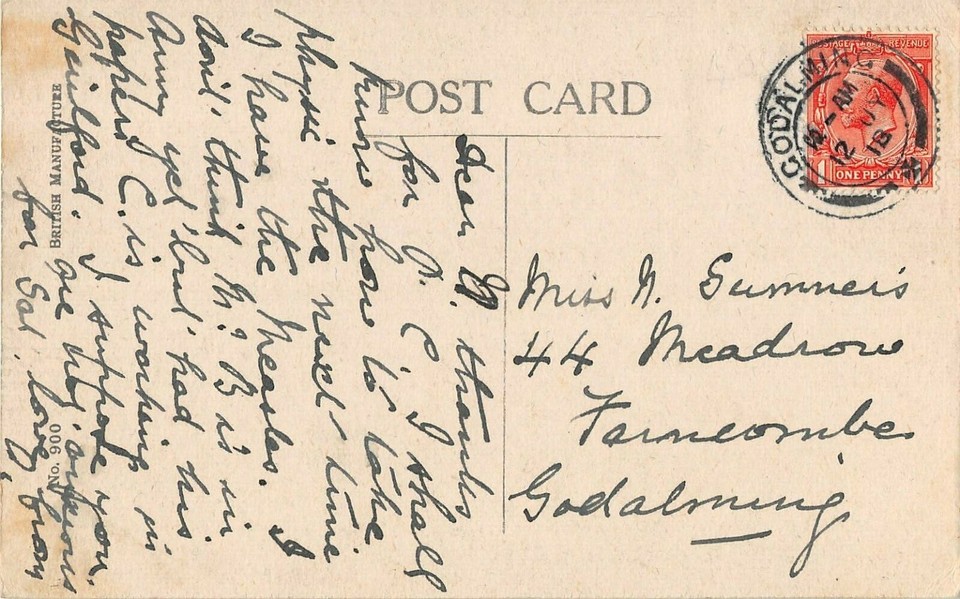 POST CARD
Dear W. thanks
for P. C. I shall
know how to take
physic the next time
I have the Measles. I
don't think Mr B is in
Army yet but had his
papers C. is working in
Guilford. I suppose you
are not anxious
for Sat. love from
BRITISH MANUFACTURE
No. 900
POSTAGE REVENUE
ONE PENNY
1
GODALMING
12 - AM
12 JY
18
Miss N. Summers
44 Meadrow
Farncombe
Godalming